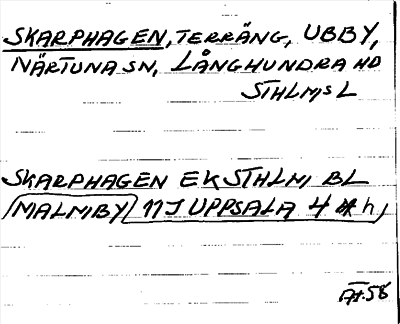 SKARPHAGEN, TERRÄNG, UBBY,
NÄRTUNA SN, LÅNGHUNDRA HD
STHLMS L
SKARPHAGEN EK STHLM BL
MALMBY 11 I UPPSALA 4 h
Ä.58